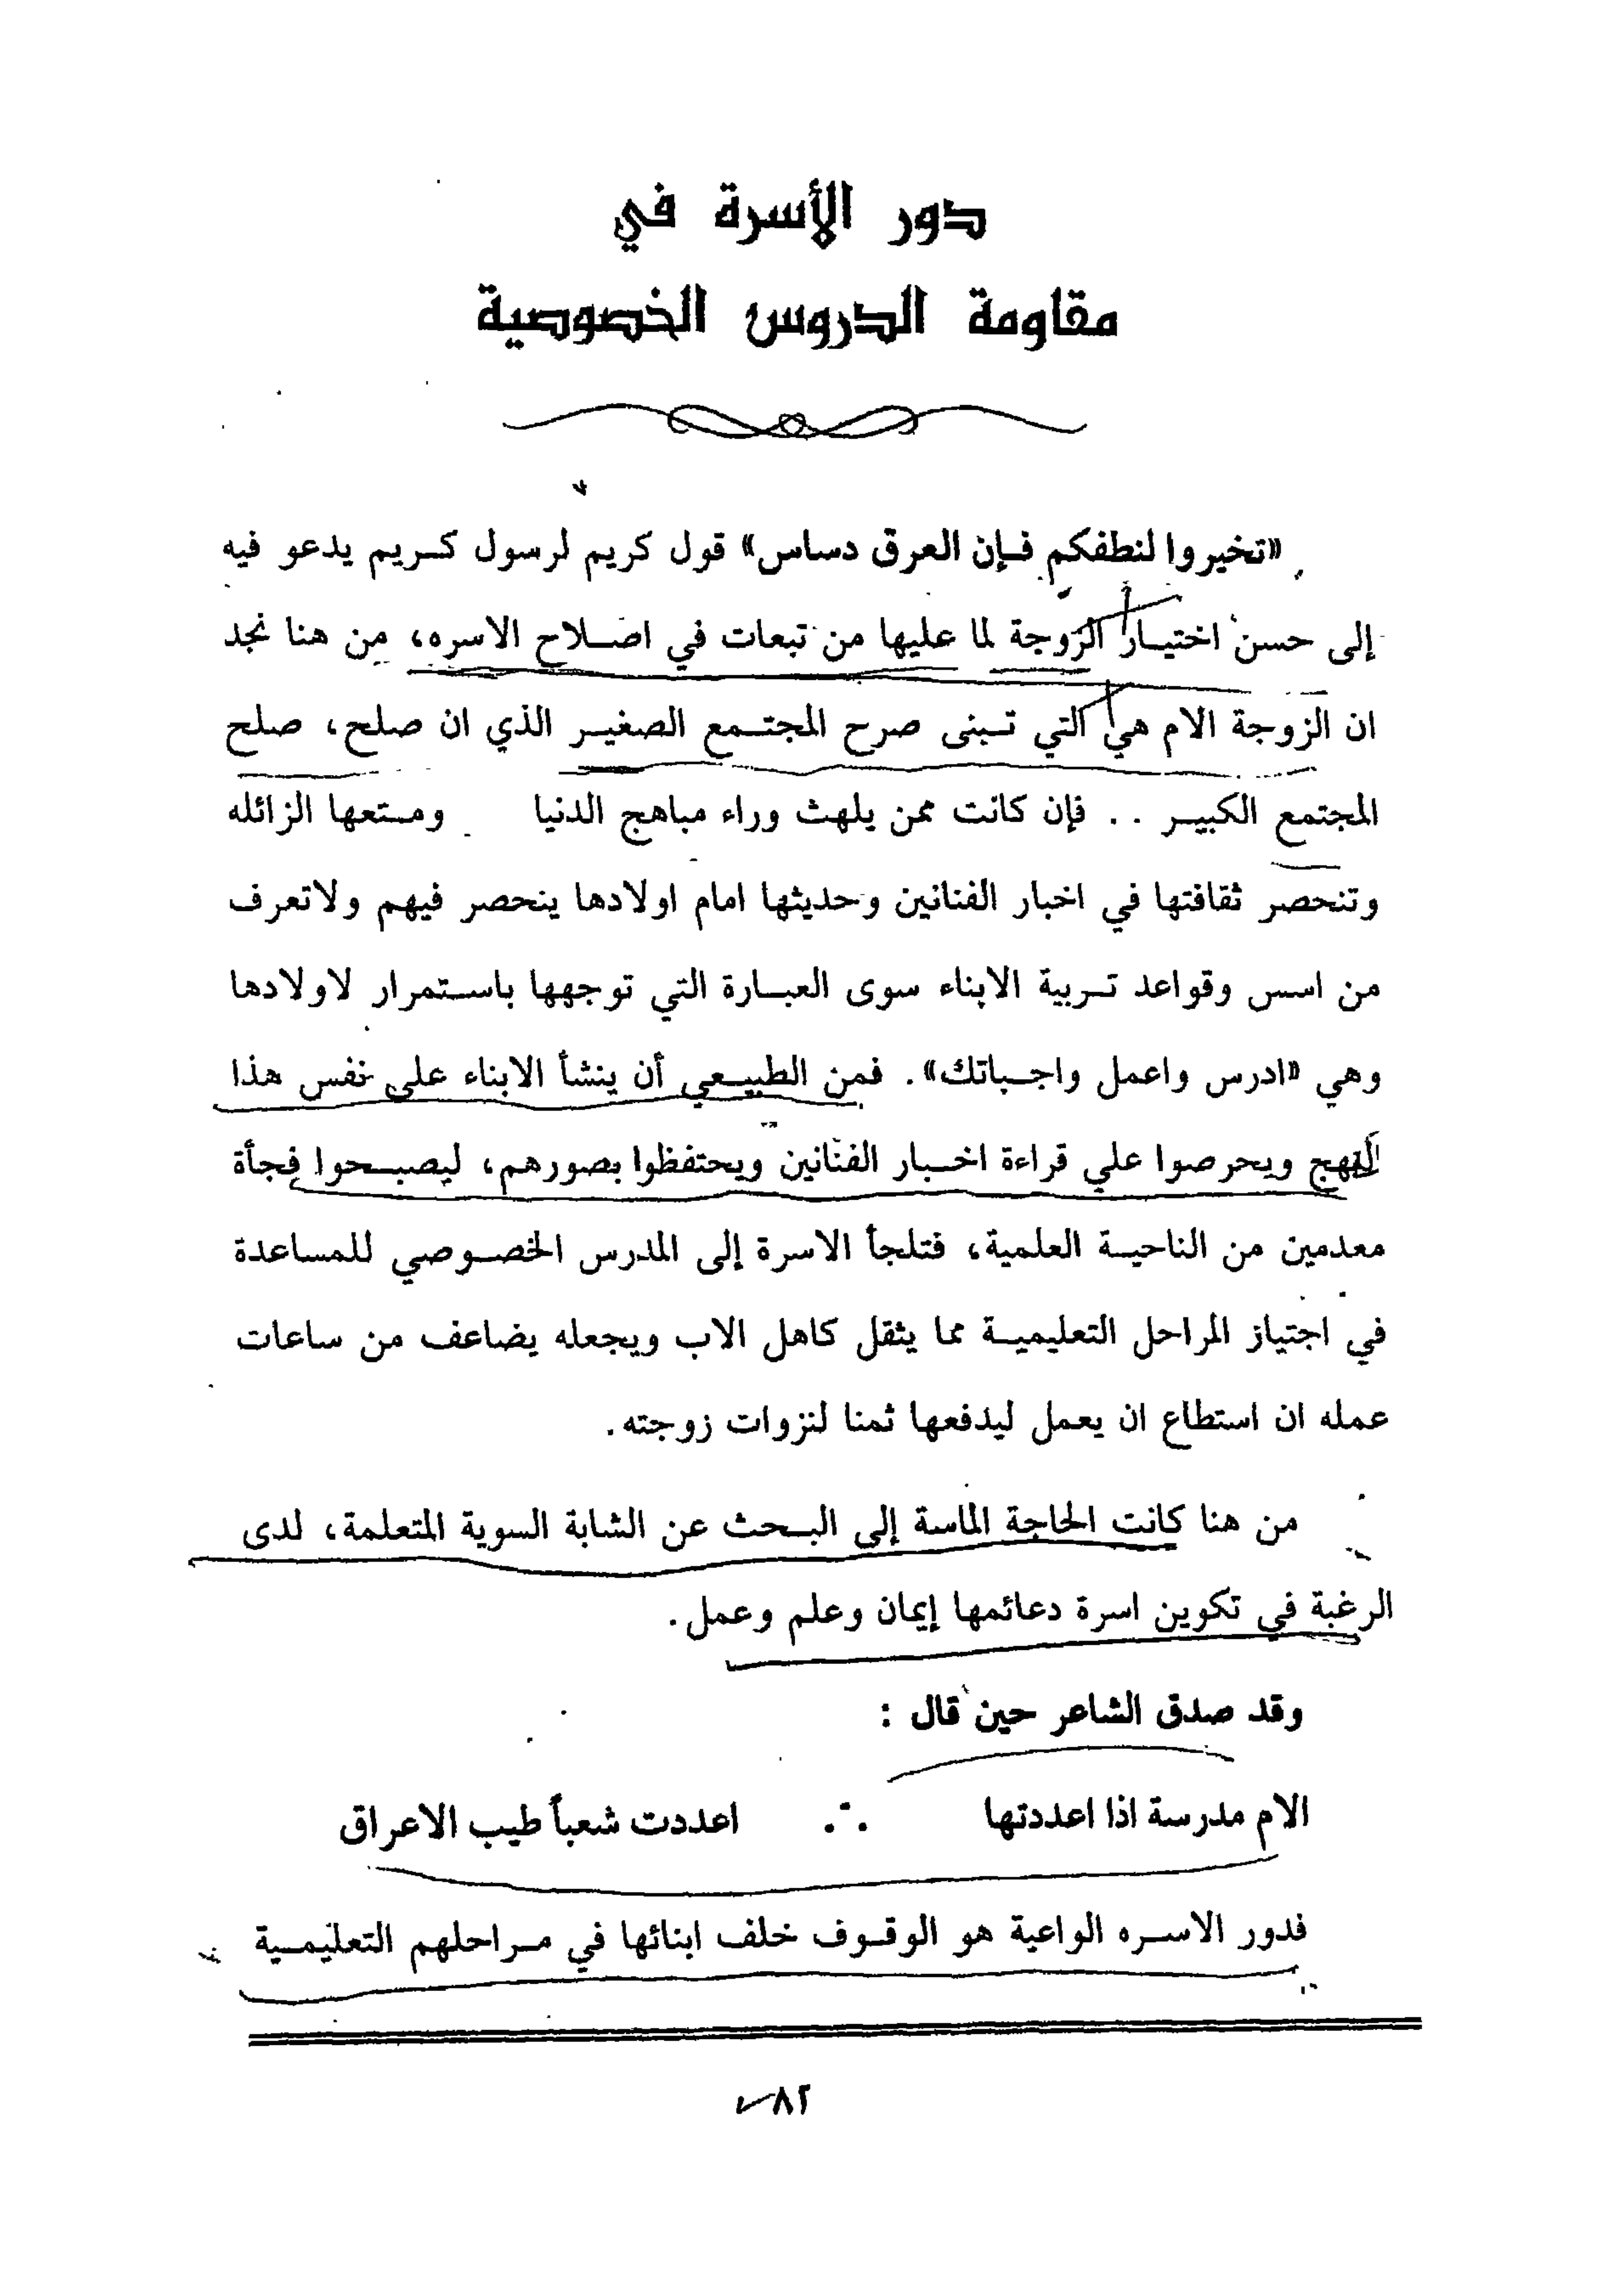 دور الأسرة في
مقاومة الدروس الخصوصية
«تخيروا لنطفكم فإن العرق دساس» قول كريم لرسول كريم يدعو فيه
إلى حسن اختيار الزوجة لما عليها من تبعات في اصلاح الاسره، من هنا نجد
ان الزوجة الام هي التي تبنى صرح المجتمع الصغير الذي ان صلح، صلح
المجتمع الكبير .. فإن كانت ممن يلهث وراء مباهج الدنيا ومتعها الزائله
وتنحصر ثقافتها في اخبار الفنانين وحديثها امام اولادها ينحصر فيهم ولاتعرف
من اسس وقواعد تربية الابناء سوى العبارة التي توجهها باستمرار لاولادها
وهي «ادرس واعمل واجباتك». فمن الطبيعي أن ينشأ الابناء على نفس هذا
النهج ويحرصوا علي قراءة اخبار الفنانين ويحتفظوا بصورهم، ليصبحوا فجأة
معدمين من الناحية العلمية، فتلجأ الاسرة إلى المدرس الخصوصي للمساعدة
في اجتياز المراحل التعليمية مما يثقل كاهل الاب ويجعله يضاعف من ساعات
عمله ان استطاع ان يعمل ليدفعها ثمنا لنزوات زوجته.
من هنا كانت الحاجة الماسة إلى البحث عن الشابة السوية المتعلمة، لدى
الرغبة في تكوين اسرة دعائمها إيمان وعلم وعمل.
وقد صدق الشاعر حين قال :
الام مدرسة اذا اعددتها ∴ اعددت شعباً طيب الاعراق
فدور الاسره الواعية هو الوقوف خلف ابنائها في مراحلهم التعليمية
٨٢